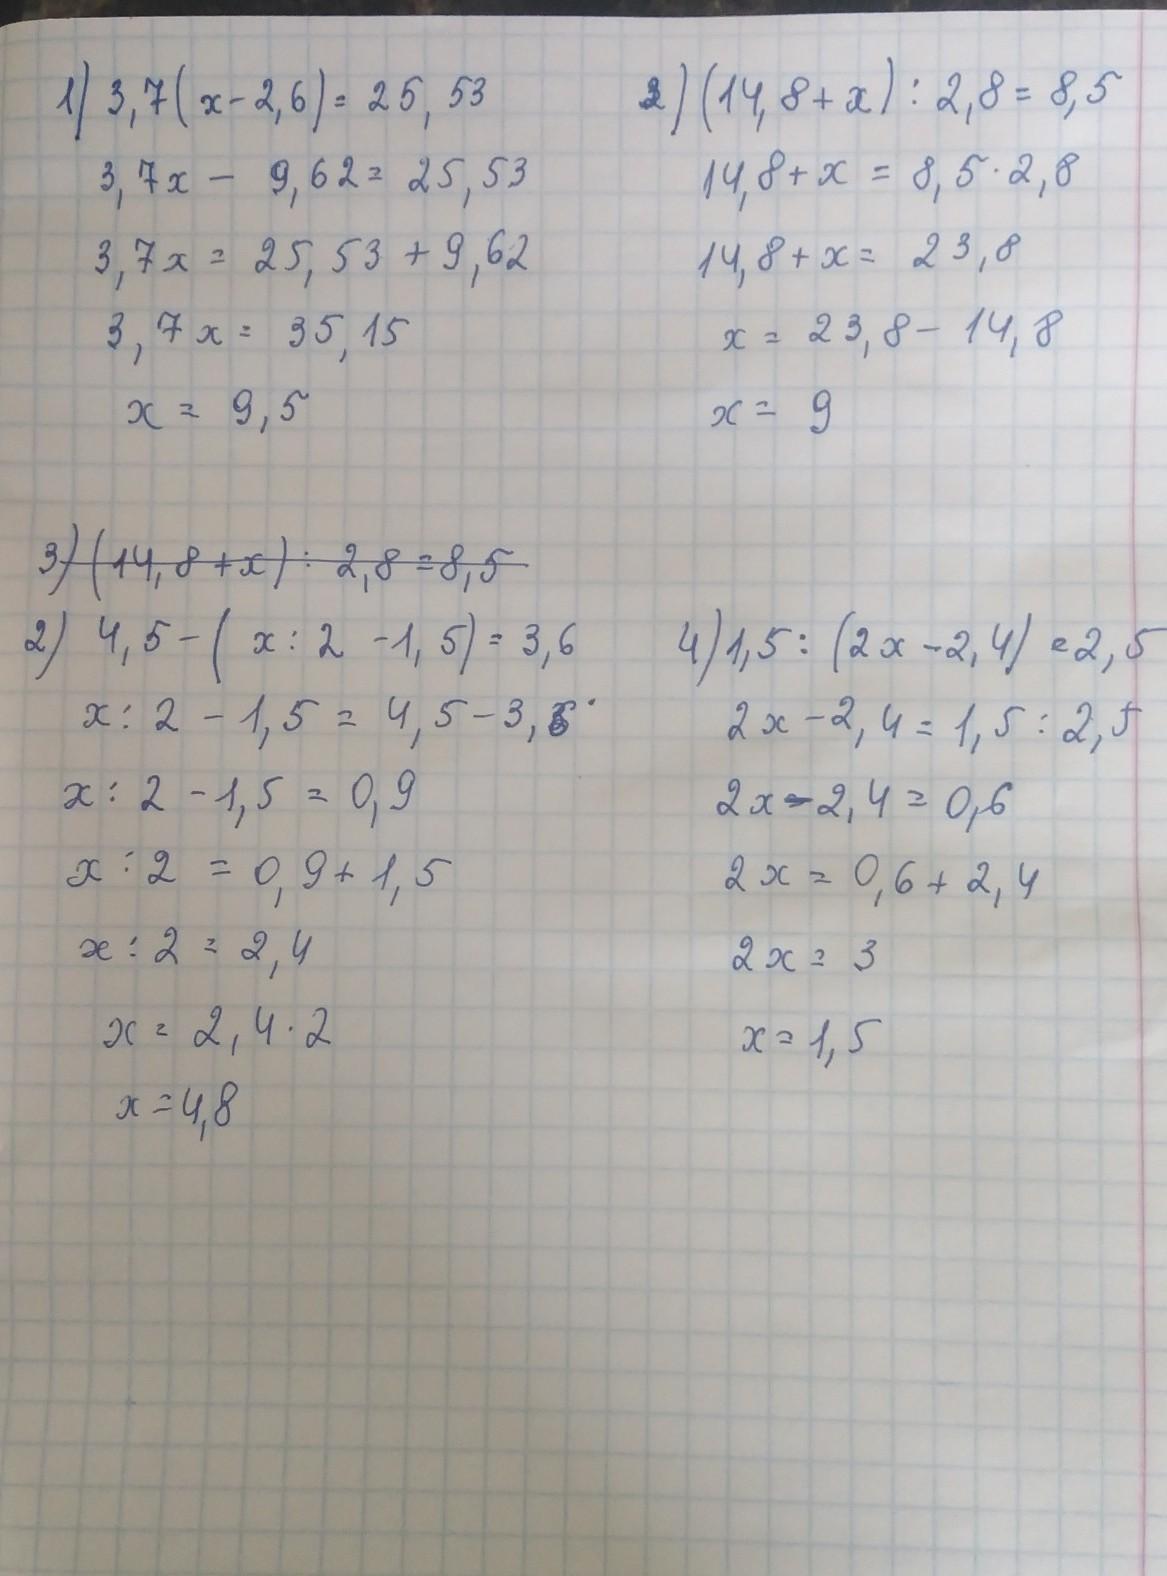 1) 3,7(x-2,6)=25,53
3,7x - 9,62=25,53
3,7x = 25,53+9,62
3,7x = 35,15
x = 9,5
3) (14,8+x) : 2,8=8,5
14,8+x = 8,5·2,8
14,8+x= 23,8
x = 23,8-14,8
x = 9
3) (14,8+x) : 2,8=8,5
2) 4,5-( x:2 -1,5)=3,6
x:2 -1,5 = 4,5-3,6
x:2 -1,5 = 0,9
x:2 = 0,9+1,5
x:2 = 2,4
x = 2,4·2
x=4,8
4) 1,5:(2x-2,4) =2,5
2x-2,4=1,5:2,5
2x-2,4=0,6
2x=0,6+2,4
2x= 3
x=1,5